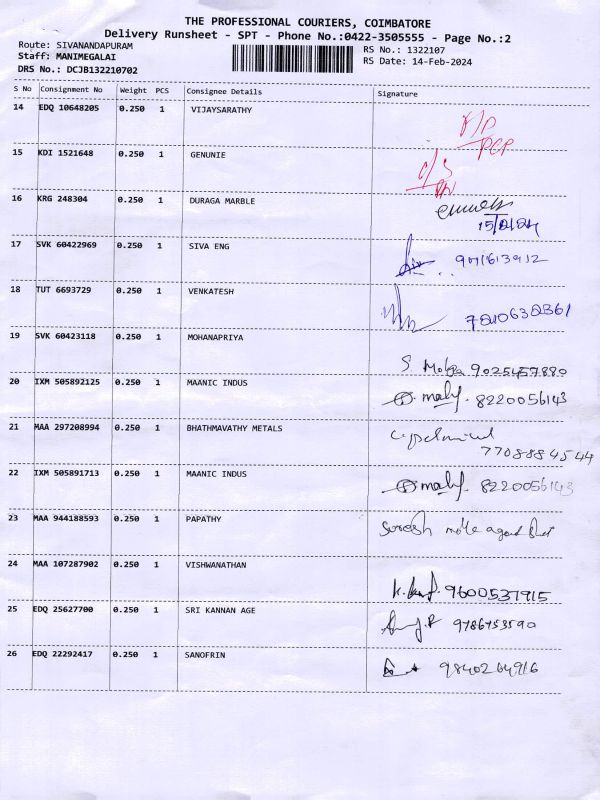 THE PROFESSIONAL COURIERS, COIMBATORE
Delivery Runsheet - SPT - Phone No.:0422-3505555 - Page No.:2
Route: SIVANANDAPURAM
RS No.: 1322107
Staff: MANIMEGALAI
RS Date: 14-Feb-2024
DRS No.: DCJB132210702
S No Consignment No Weight PCS Consignee Details Signature
14 EDQ 10648205 0.250 1 VIJAYSARATHY
15 KDI 1521648 0.250 1 GENUNIE
16 KRG 248304 0.250 1 DURAGA MARBLE
17 SVK 60422969 0.250 1 SIVA ENG
18 TUT 6693729 0.250 1 VENKATESH
19 SVK 60423118 0.250 1 MOHANAPRIYA
9025457880
20 IXM 505892125 0.250 1 MAANIC INDUS
8220056143
21 MAA 297208994 0.250 1 BHATHMAVATHY METALS
7708884544
22 IXM 505891713 0.250 1 MAANIC INDUS
8220056143
23 MAA 944188593 0.250 1 PAPATHY
Suresh
24 MAA 107287902 0.250 1 VISHWANATHAN
9600537915
25 EDQ 25627700 0.250 1 SRI KANNAN AGE
9786753590
26 EDQ 22292417 0.250 1 SANOFRIN
9840264916